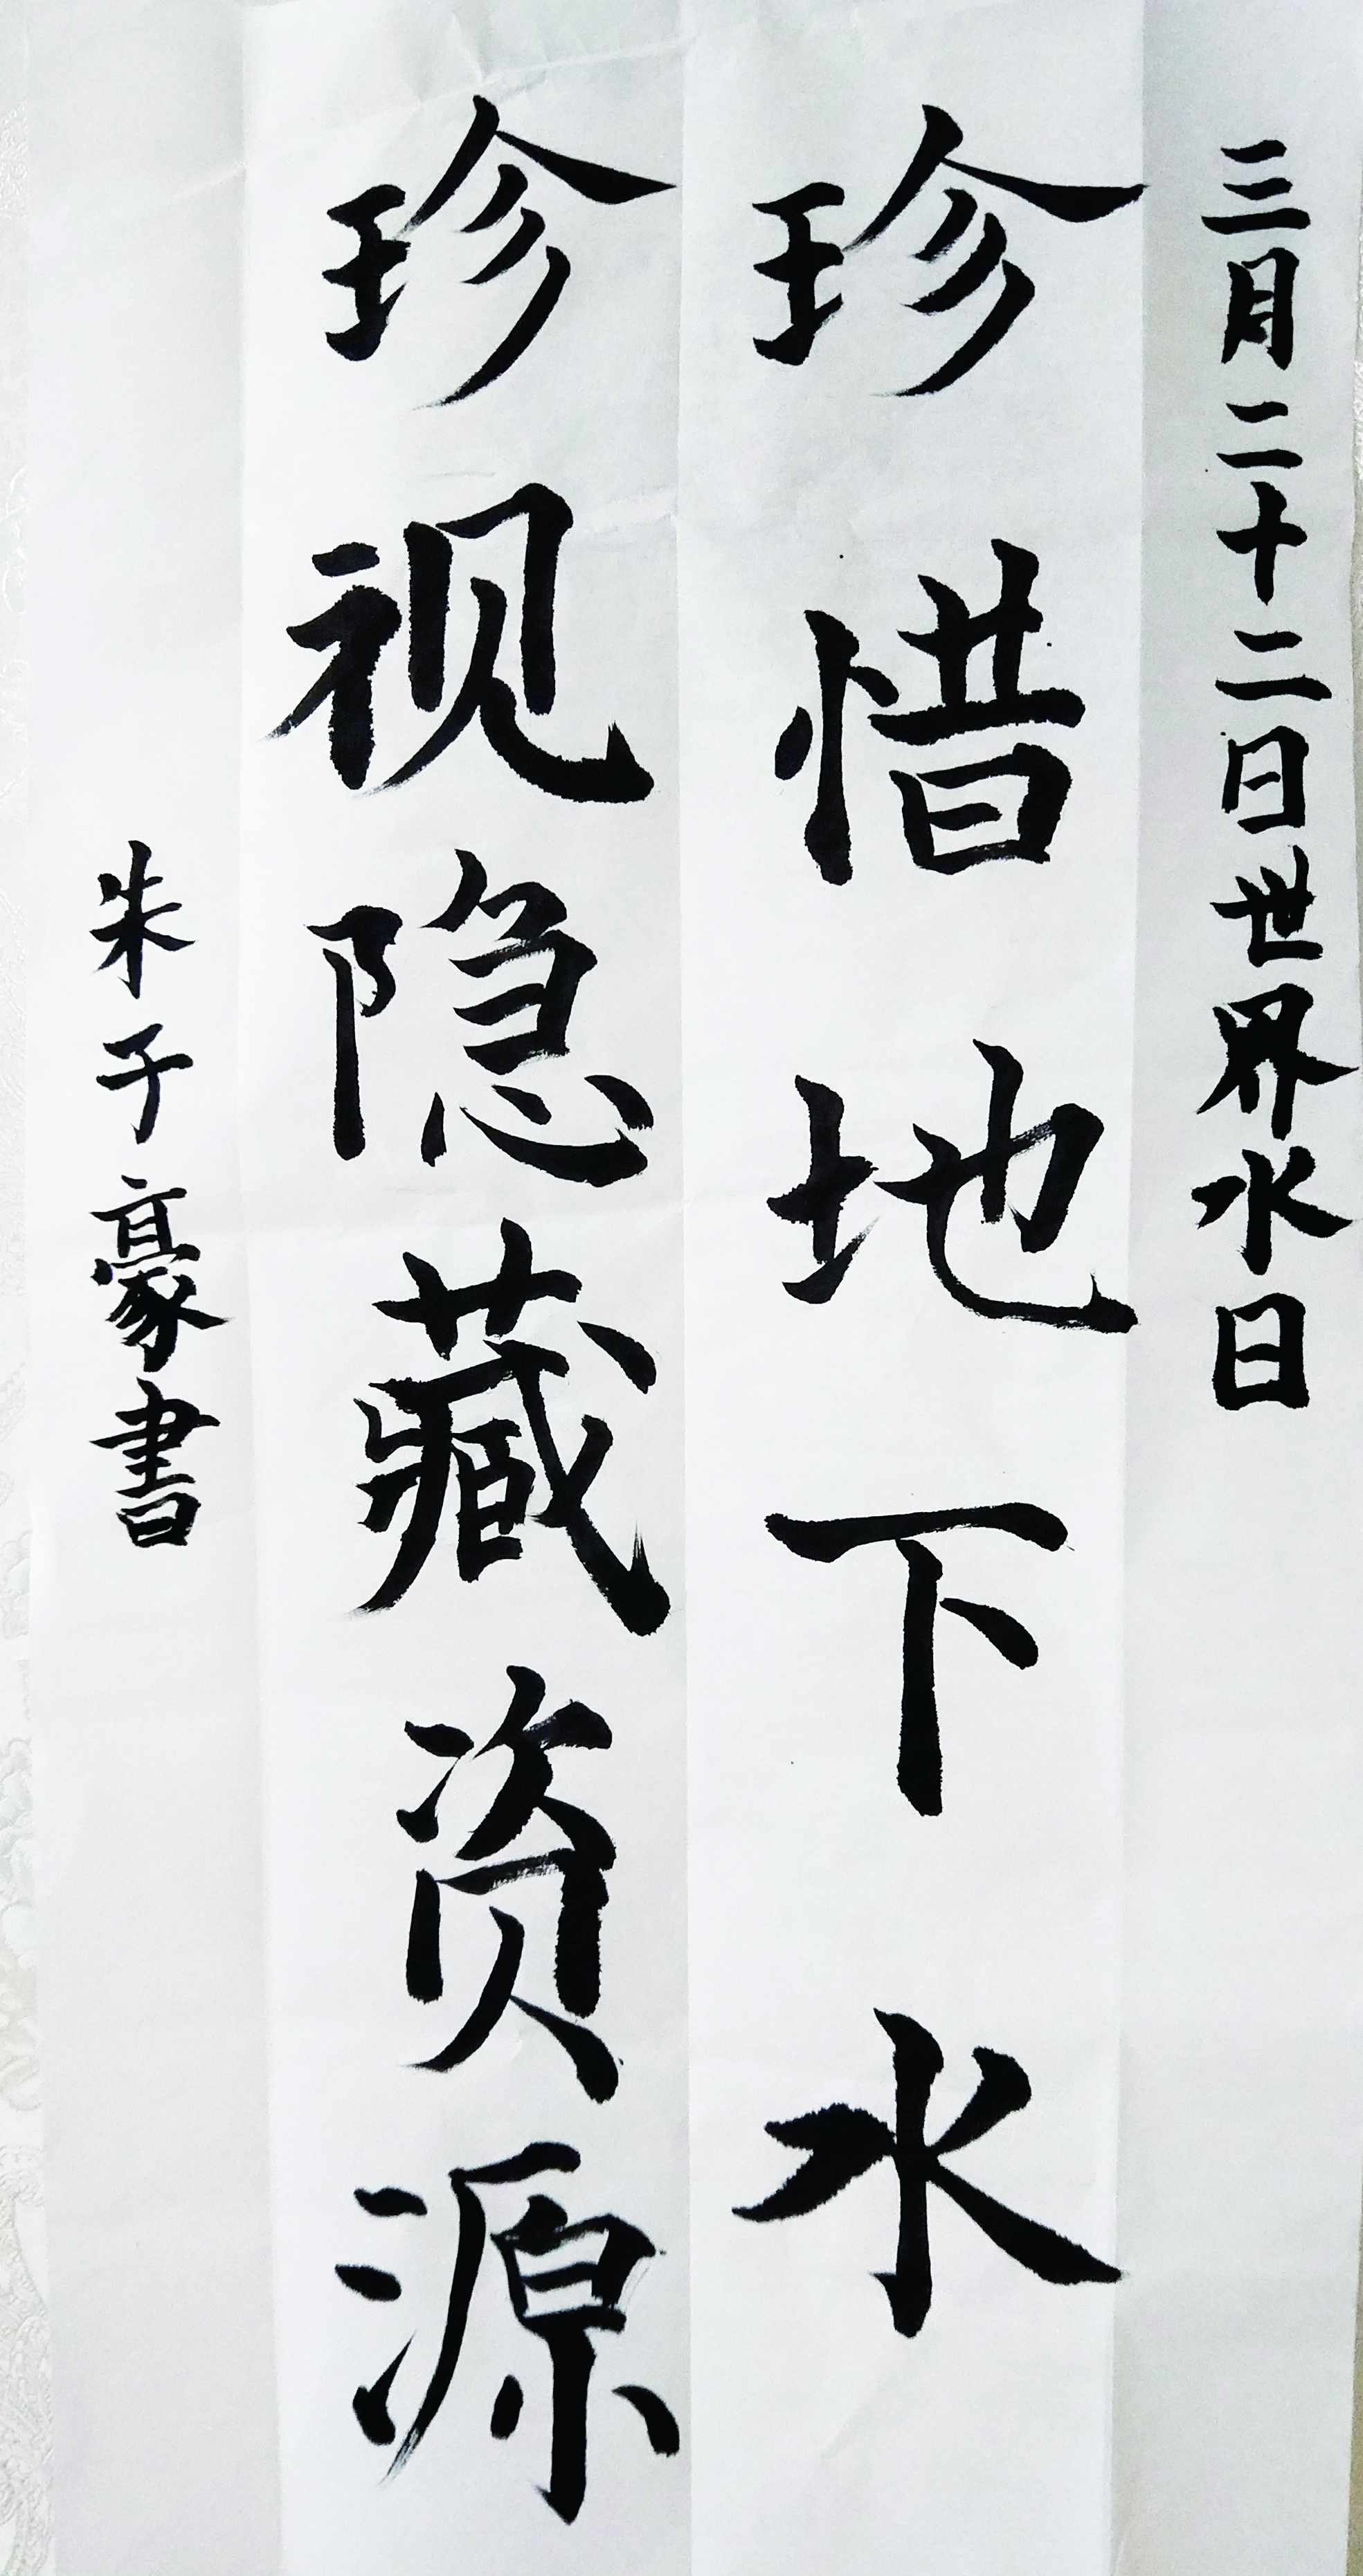 三月二十二日世界水日
珍惜地下水
珍视隐藏资源
朱子豪書